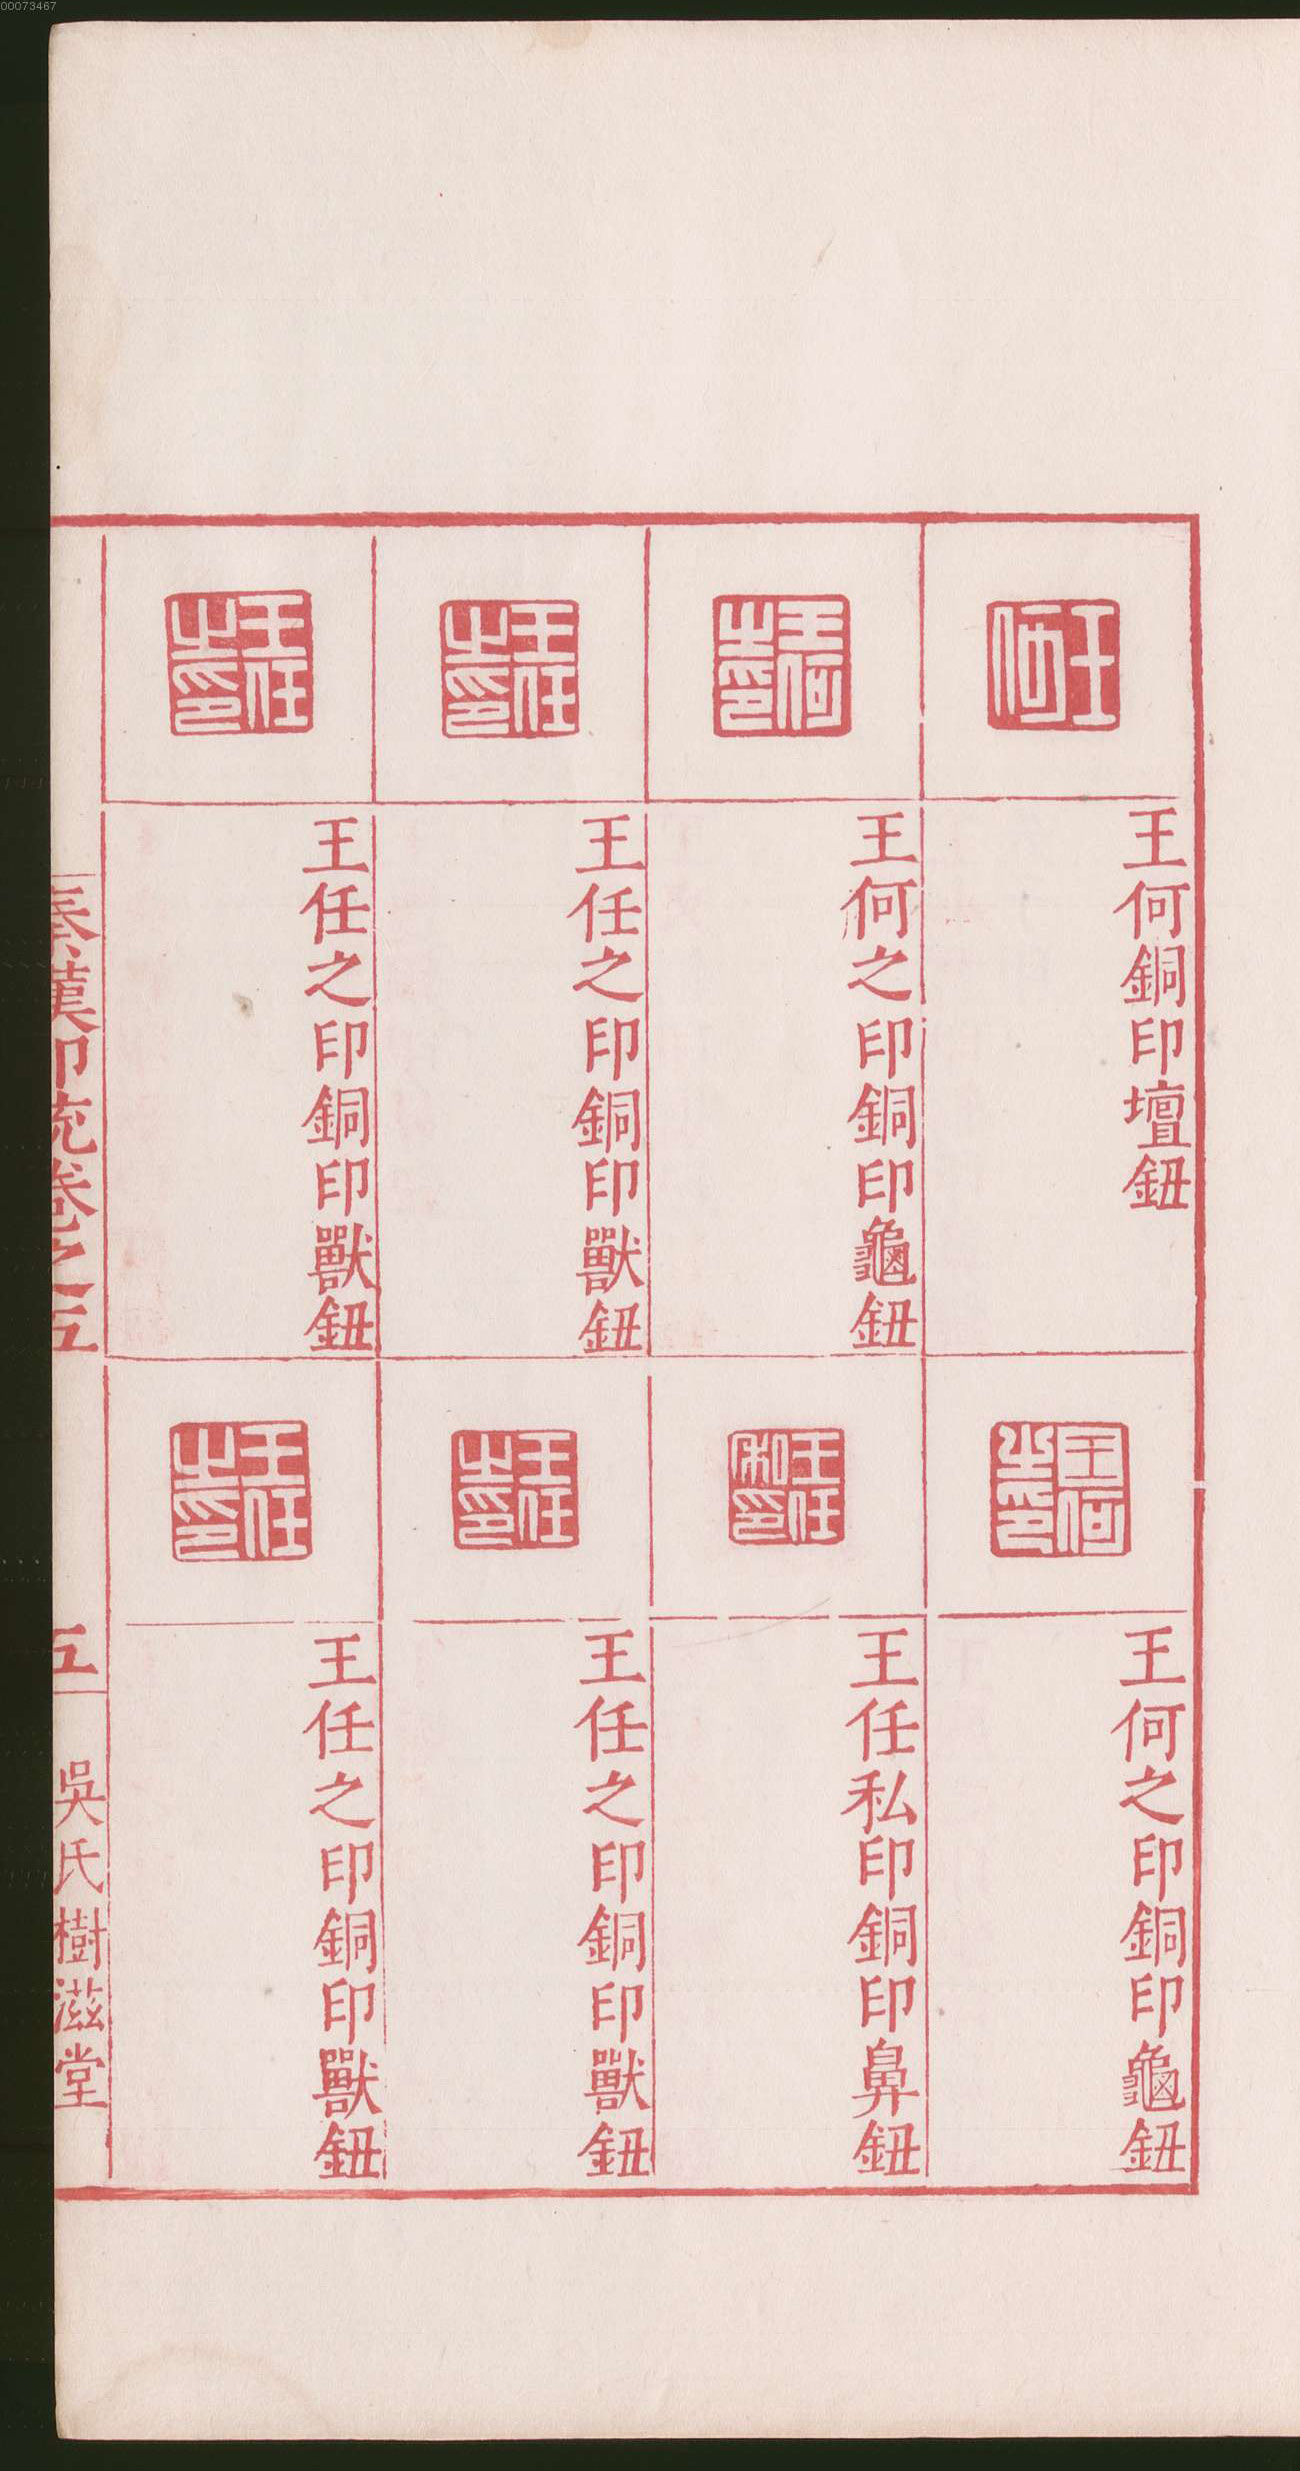 00073467
王何
王何銅印壇鈕
王何之印
王何之印銅印龜鈕
王何之印
王何之印銅印龜鈕
王任私印
王任私印銅印鼻鈕
王任之印
王任之印銅印獸鈕
王任之印
王任之印銅印獸鈕
王任之印
王任之印銅印獸鈕
王任之印
王任之印銅印獸鈕
秦漢印統卷之五
五
吳氏樹滋堂